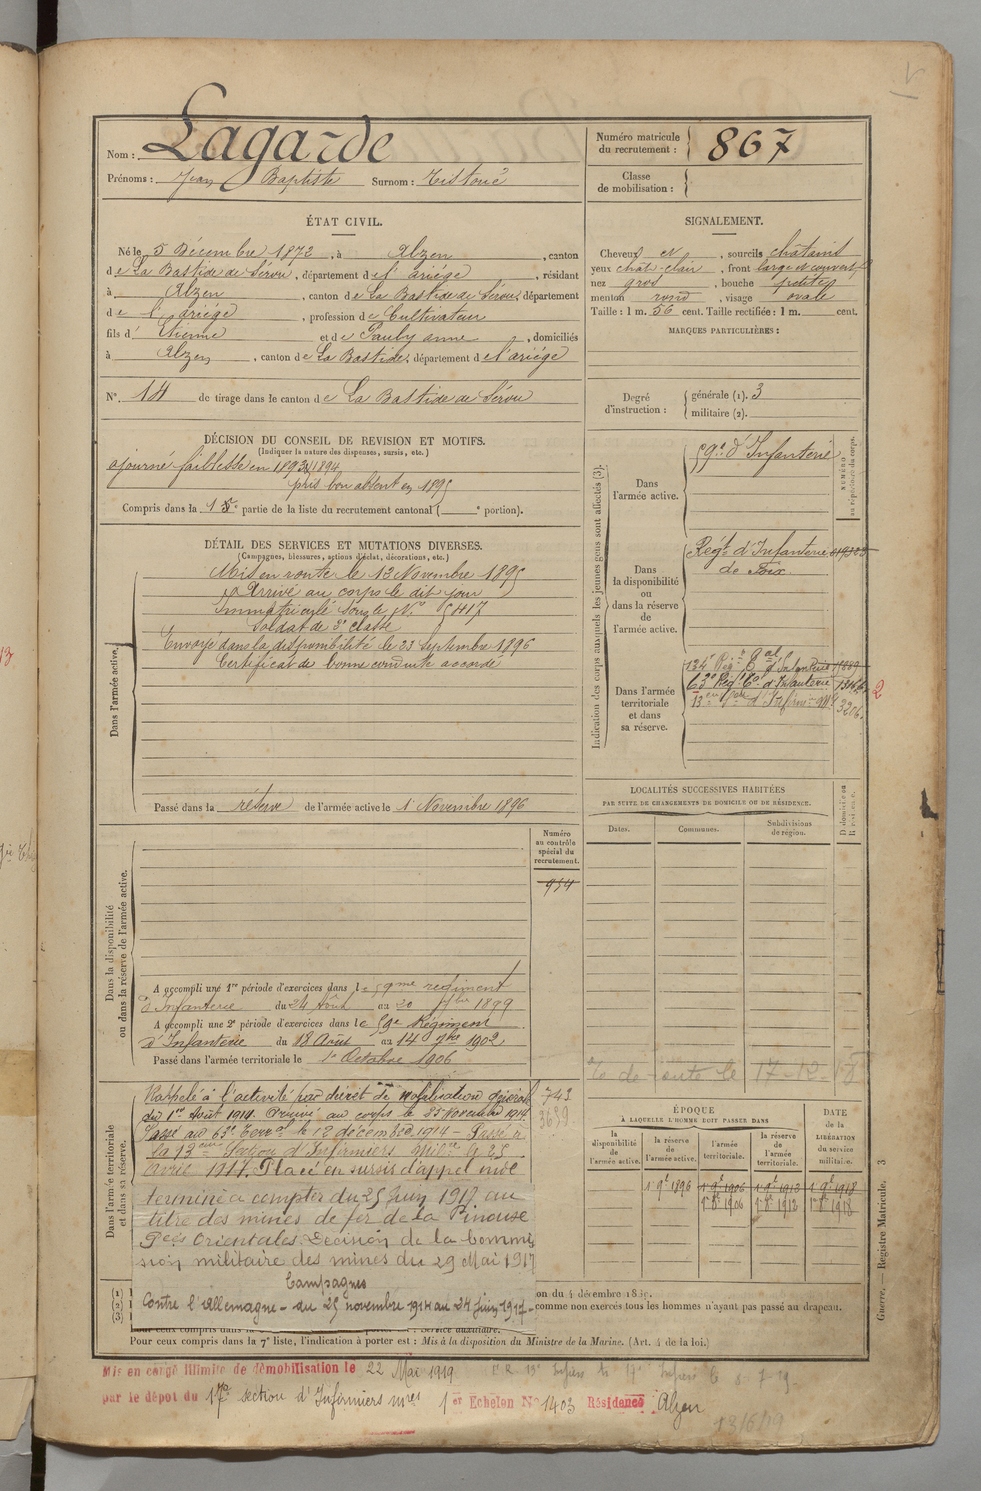 Nom : Lagarde
Prénoms : Jean Baptiste Surnom : Tistoué
Numéro matricule du recrutement : 867
Classe de mobilisation :
ÉTAT CIVIL.
Né le 5 Décembre 1872, à Alzen, canton
de La Bastide de Sérou, département de l'ariége, résidant
à Alzen, canton de La Bastide de Sérou, département
de l'ariége, profession de Cultivateur
fils d'Etienne et de Pauly anne, domiciliés
à Alzen, canton de La Bastide, département de l'ariége
N°. 14 de tirage dans le canton de La Bastide de Sérou
SIGNALEMENT.
Cheveux et, sourcils chatains
yeux chat. clair, front large et couvert
nez gros, bouche petite
menton rond, visage ovale
Taille : 1 m. 56 cent. Taille rectifiée : 1 m. cent.
MARQUES PARTICULIÈRES :
Degré d'instruction : générale (1). 3
militaire (2).
DÉCISION DU CONSEIL DE REVISION ET MOTIFS.
(Indiquer la nature des dispenses, sursis, etc.)
ajourné faiblesse en 1893 1894
pris bon absent en 1895
Compris dans la partie de la liste du recrutement cantonal ( e portion).
DÉTAIL DES SERVICES ET MUTATIONS DIVERSES.
(Campagnes, blessures, actions d'éclat, décorations, etc.)
Dans l'armée active.
Mis en route le 13 Novembre 1895
Arrivé au corps le dit jour
Immatriculé sous le N° 5417
Soldat de 2e classe
Envoyé dans la disponibilité le 23 septembre 1896
Certificat de bonne conduite accordé
Passé dans la réserve de l'armée active le 1 Novembre 1896
Indication des corps auxquels les jeunes gens sont affectés (3).
NUMÉRO au répertoire du corps.
Dans l'armée active.
59e d'Infanterie
Dans la disponibilité ou dans la réserve de l'armée active.
Régt d'Infanterie
de Foix.
Dans l'armée territoriale et dans sa réserve.
134e Régt Tal d'Infanterie
63e Régt Tal d'Infanterie
13eme Son d'Infirm. Mil. 3206
2
LOCALITÉS SUCCESSIVES HABITÉES
PAR SUITE DE CHANGEMENTS DE DOMICILE OU DE RÉSIDENCE.
Dates. Communes. Subdivisions de région.
Dans la disponibilité ou dans la réserve de l'armée active.
Numéro au contrôle spécial du recrutement.
954
A accompli une 1re période d'exercices dans le 59me régiment
d'Infanterie du 24 Août au 20 7bre 1899
A accompli une 2e période d'exercices dans le 59e Régiment
d'Infanterie du 18 Août au 14 7bre 1902
Passé dans l'armée territoriale le 1er Octobre 1906
Dans l'armée territoriale et dans sa réserve.
Rappelé à l'activité par décret de Mobilisation général
du 1er Août 1914. Arrivé au corps le 25 novembre 1914.
Passé au 63e Terral le 12 décembre 1914 – Passé à
la 13eme Section d'Infirmiers Milres le 25
avril 1917. Placé en sursis d'appel indé
terminé a compter du 25 Juin 1917 au
titre des mines de fer de la Pinouse
Pées Orientales. Décision de la Commis
sion militaire des mines du 29 Mai 1917
Campagnes
Contre l'Allemagne – du 25 novembre 1914 au 24 Juin 1917 –
743
3639
ÉPOQUE
À LAQUELLE L'HOMME DOIT PASSER DANS
la disponibilité de l'armée active. la réserve de l'armée active. l'armée territoriale. la réserve de l'armée territoriale.
DATE de la LIBÉRATION du service militaire.
1 9e 1896 1 9e 1906 1 9e 1912 1 9e 1918
1 8e 1906 1 8e 1912 1 8e 1918
on du 4 décembre 1889.
comme non exercés tous les hommes n'ayant pas passé au drapeau.
Pour ceux compris dans la 7e liste, l'indication à porter est : Mis à la disposition du Ministre de la Marine. (Art. 4 de la loi.)
Guerre. — Registre Matricule. 3
Mis en congé illimité de démobilisation le 22 Mai 1919
par le dépot du 17e section d'Infirmiers mres 1er Echelon N° 1403 Résidence Alzen
13/6/19